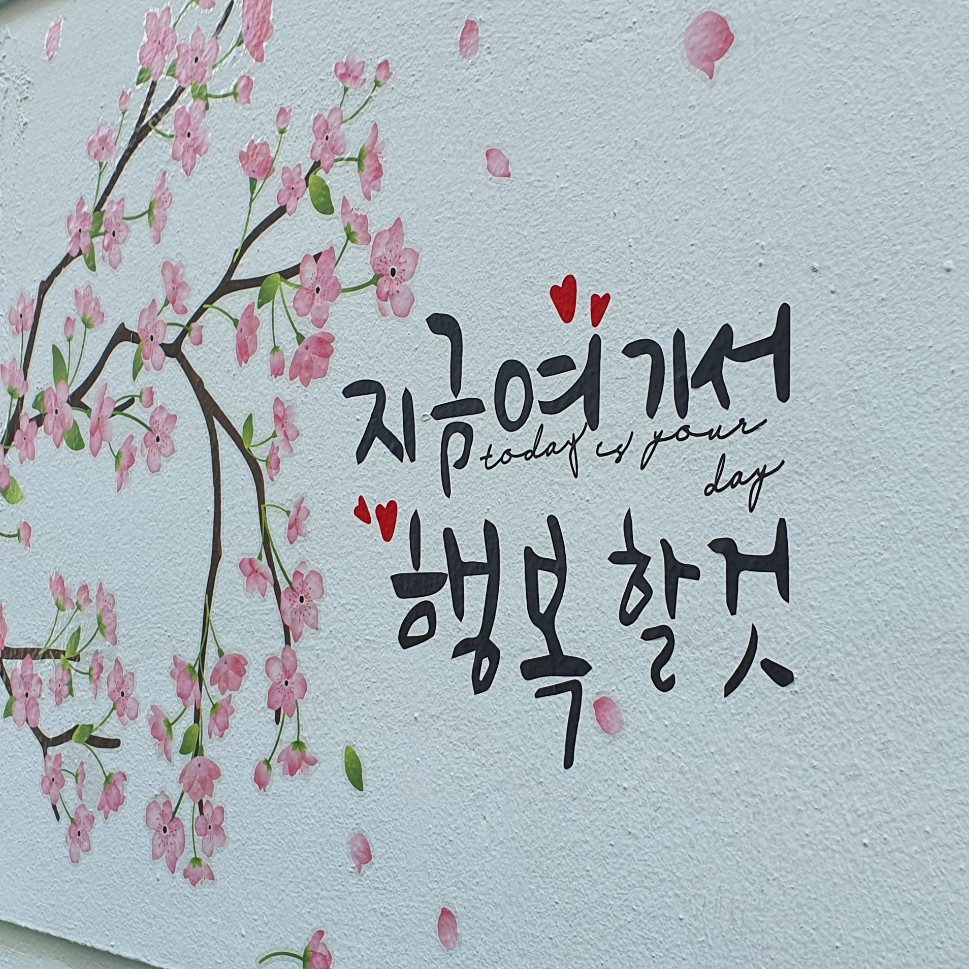 지금 여기서
today is your
day
행복 할 것